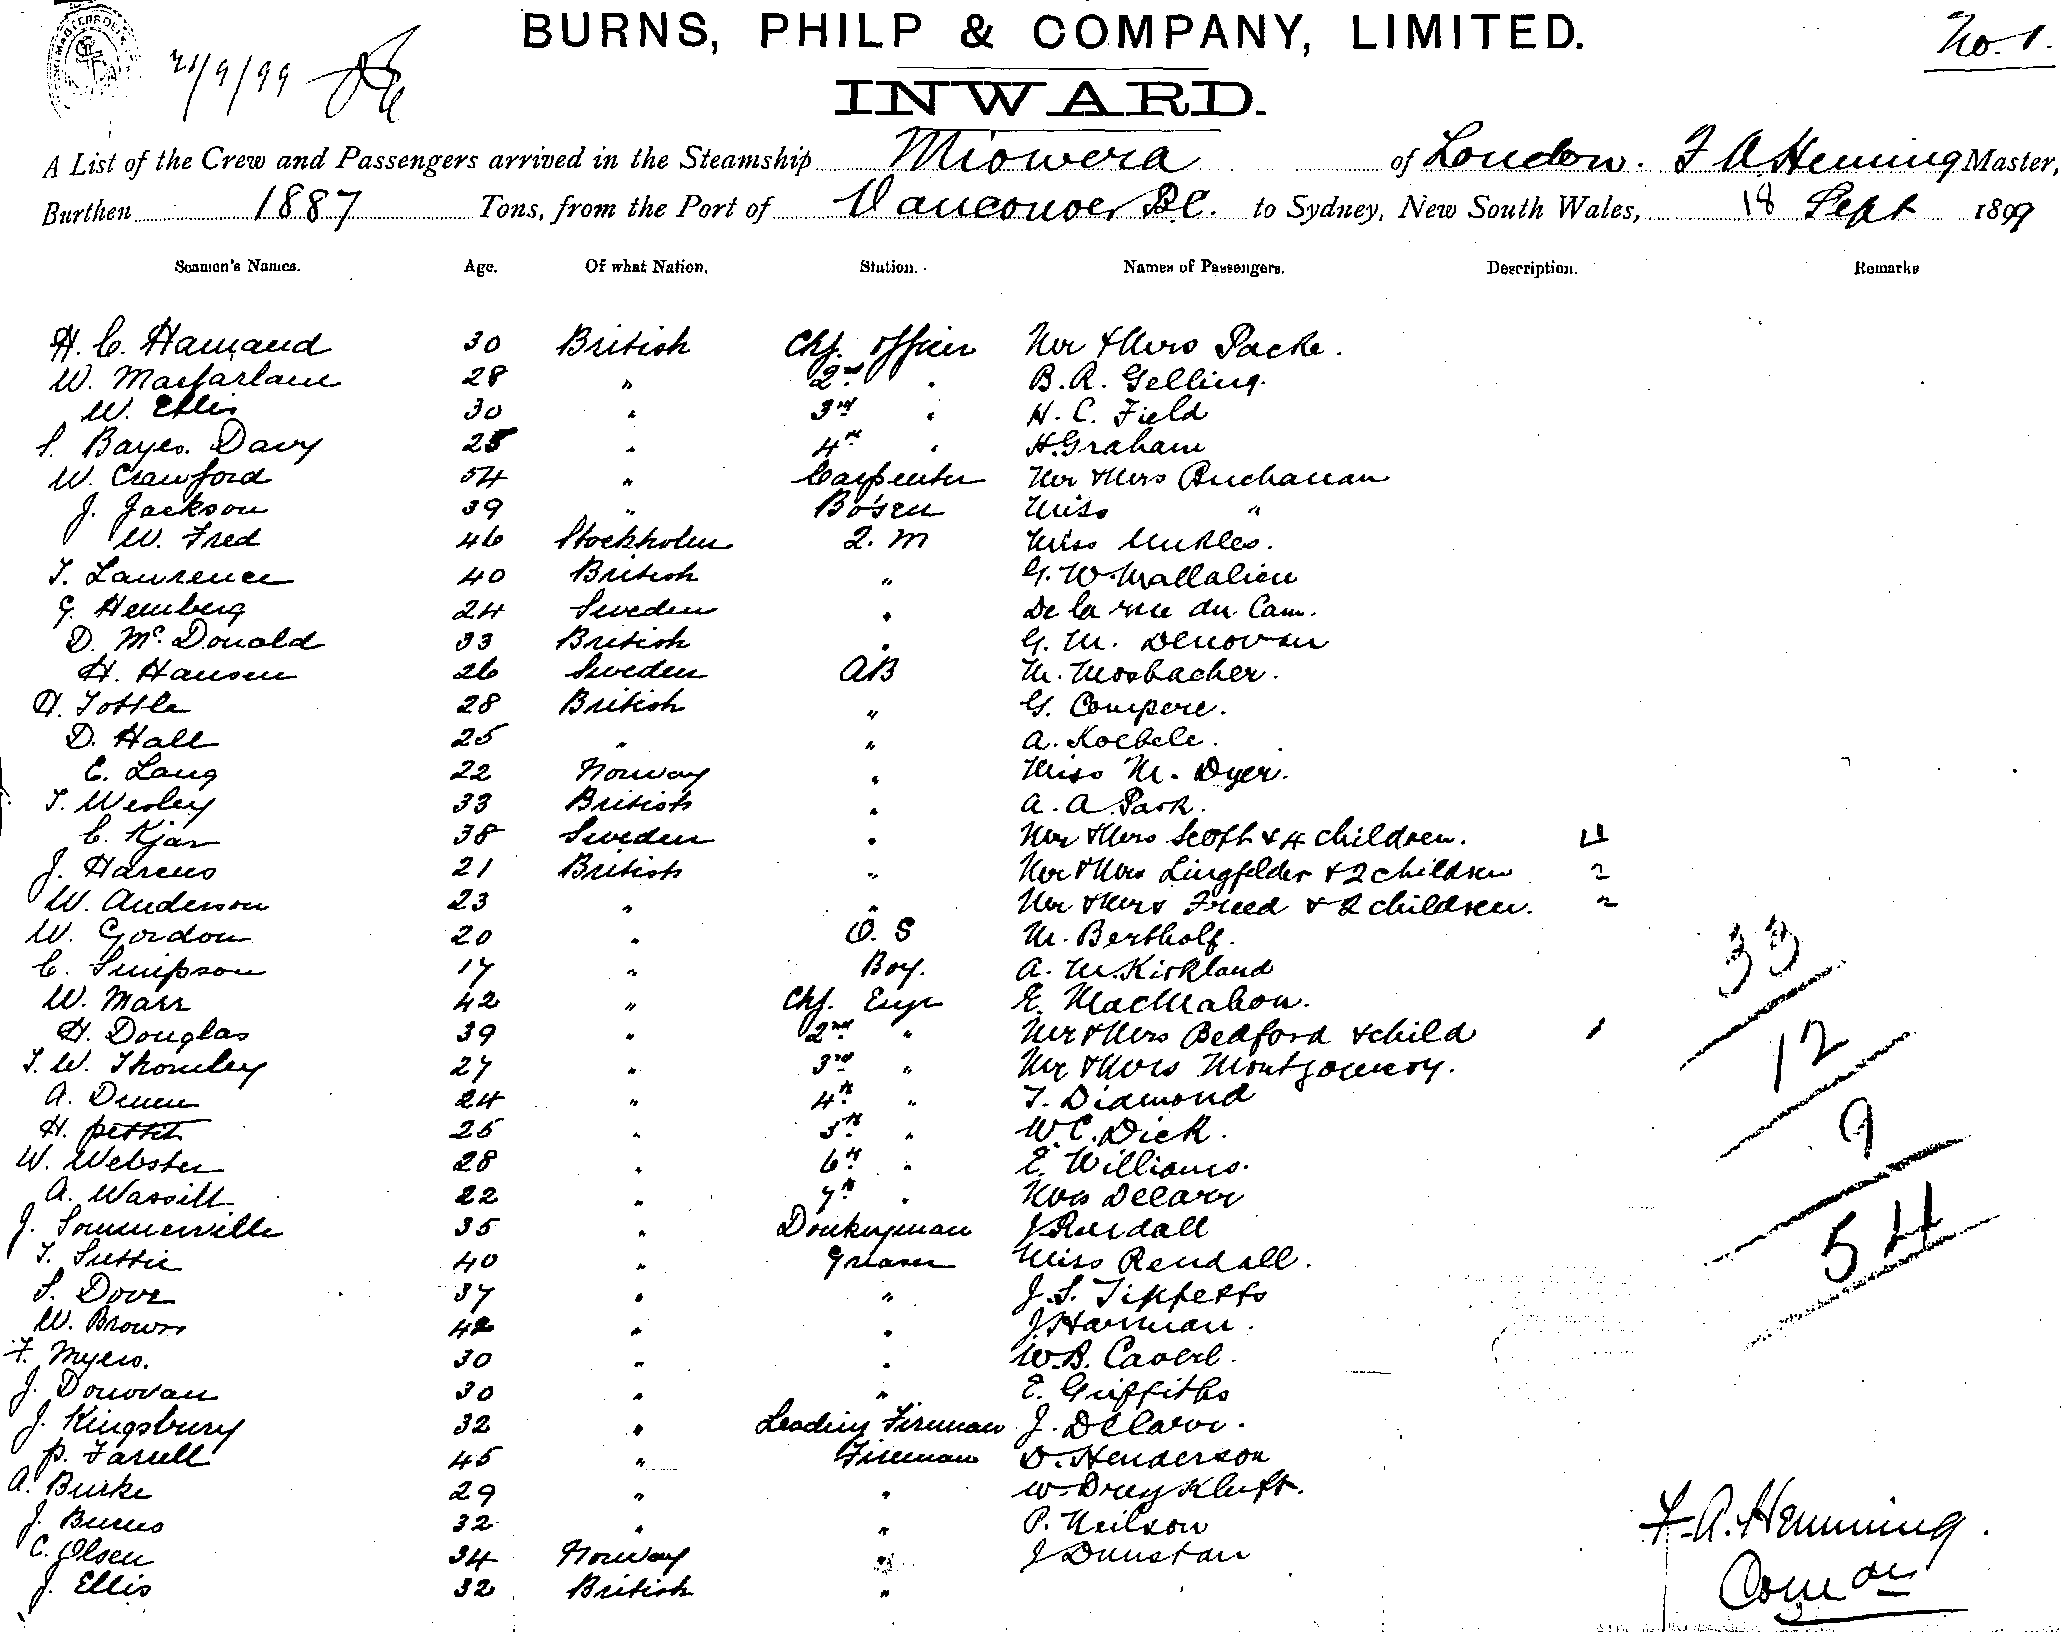 BURNS, PHILP & COMPANY, LIMITED. No. 1.
21/9/99
INWARD.
A List of the Crew and Passengers arrived in the Steamship Miowera of London. F A Hemming Master,
Burthen 1887 Tons, from the Port of Vancouver B.C. to Sydney, New South Wales, 18 Sept 1899
Seamen's Names. Age. Of what Nation. Station. Names of Passengers. Description. Remarks
H. C. Hamand 30 British Chf. officer Mr & Mrs Packe.
W. Macfarlane 28 " 2nd " B. R. Gelling.
W. Ellis 30 " 3rd " H. C. Field
S. Bayes. Davy 25 " 4th " H. Graham
W. Crawford 54 " Carpenter Mr & Mrs Buchanan
J. Jackson 39 " Bosen Miss "
W. Fred 46 Stockholm Q. M Miss
T. Lawrence 40 British " G. W. Mallalieu
G. Hemberg 24 Sweden " De la rue du Cam.
D. McDonald 33 British " G. M. Denovan
H. Hansen 26 Sweden AB M. Mosbacher.
H. Tottle 28 British " G. Compere.
D. Hall 25 " " A. Koebele.
C. Lang 22 Norway " Miss M. Dyer.
T. Wesley 33 British " A. A. Park.
C. Kjar 38 Sweden " Mr & Mrs Scott & 4 children. 4
J. Harcus 21 British " Mr & Mrs Lingfelder & 2 children 2
W. Anderson 23 " " Mr & Mrs Freed & 2 children. 2
W. Gordon 20 " O. S M. Bertholf.
C. Simpson 17 " Boy. A. M. Kirkland
W. Marr 42 " Chf. Engr E. MacMahon.
H. Douglas 39 " 2nd " Mr & Mrs Bedford & child 1
T. W. Thomley 27 " 3rd " Mr & Mrs Montgomery.
A. 24 " 4th " T. Diamond
H. Pettit 25 " 5th " W. C. Dick.
W. Webster 28 " 6th " E. Williams.
A. Wassill 22 " 7th " Mrs Delarr
J. Sommerville 35 " Donkeyman J. Rendall
T. Suttie 40 " Greaser Miss Rendall.
S. Dove 37 " " J. S. Tippetts
W. Brown 42 " " J. Harman.
F. Myers. 30 " " W. B. Caverl.
J. Donovan 30 " " E. Griffiths
J. Kingsbury 32 " Leading Fireman J. Delarr.
P. Farrell 45 " Fireman D. Henderson
A. Burke 29 " " W. Dreykluft.
J. Burns 32 " " P. Neilson
C. Olsen 34 Norway " J Dunstan
J. Ellis 32 British "
33
12
9
54
F. A. Hemming.
Comdr